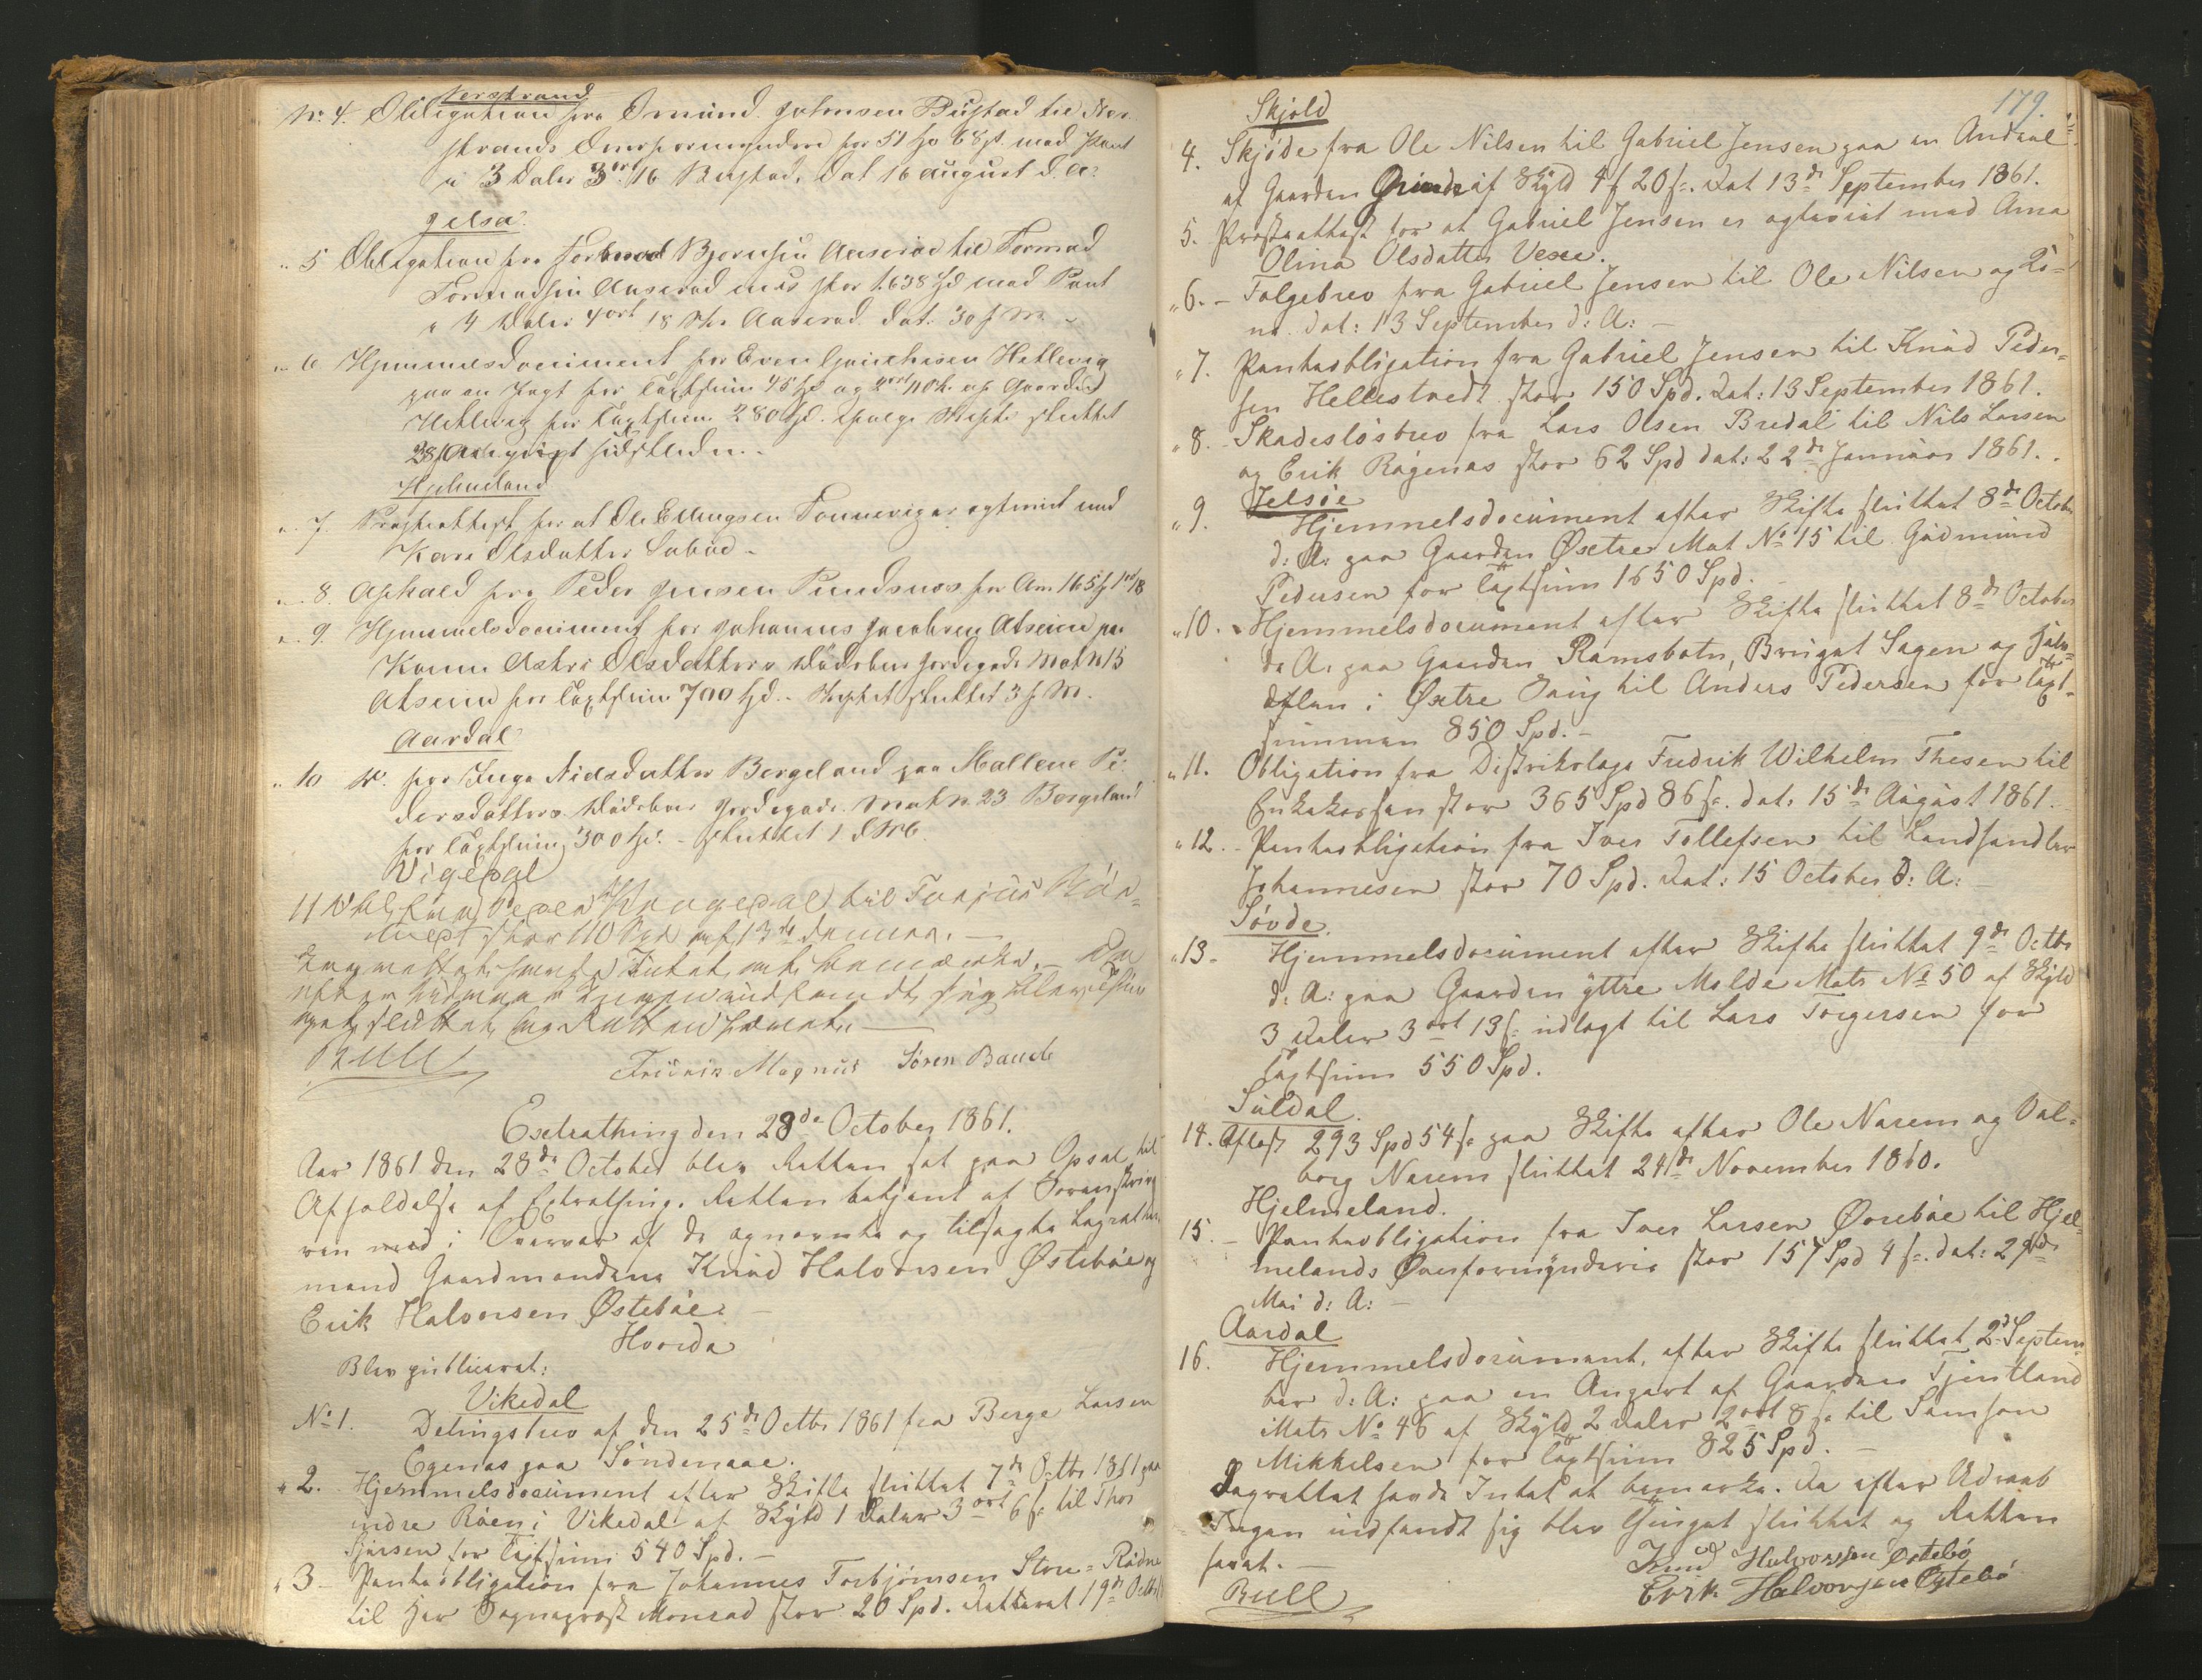 Nerstrand
No. 4. Obligation fra Omund Johnsen Bustad til Ner-
strands Overformynderi for 51 Spd 68 s. med Pant
i 3 Daler 3 ort 16 Bustad. Dat 16 august d. A.
Jelsa
" 5 Obligation fra Bjornsen Aaserød til Tormod
Tormodsen Aaserød stor 1638 Spd med Pant
i 4 Daler 4 ort 18 Aaserød. Dat. 30 f. M.
" 6 Hjemmelsdocument for Even Hetlevig
paa en Jagt for Taxtsum 45 Spd og af Gaarden
Hetlevig for Taxtsum 280 Spd. ifølge Skifte sluttet
28 august sidstleden.
Hjelmeland
" 7. Præsteattest for at Ole Ellingsen Tonnevig er egteviet med
Kari Olsdatter
" 8. Afkald fra Peder Jensen Pundsnes for Arv 165 Spd 1 ort 18
" 9. Hjemmelsdocument for Johannes Jacobsen Atseim paa
Konen Astri Olsdatters Dødsboes Jordegods Mat No 15
Atseim for Taxtsum 700 Spd. - Skiftet sluttet 3 f. M.
Aardal
" 10 Do. for Inga Nielsdatter Bergeland paa Mallene Pe-
dersdatters Dødsboes Jordegods Mat No. 23 Bergeland
for Taxtsum 300 Spd. - sluttet 1 d. Mts.
Vigedal
11 Obl. fra Peder til Torjus
stor 110 Spd af 13de dennes. -
Lagrettet havde Intet at bemærke. - Da
efter Udraab Ingen indfandt sig blev Thin-
get sluttet og Retten hævet. -
Bull
Fridrik Magnus Søren Baade
Extrathing den 28de October 1861.
Aar 1861 den 28de October blev Retten sat paa Opsal til
Afholdelse af Extrathing. Retten betjent af Sorenskrive-
ren med i Overvær af de opnævnte og tilsagte Lagrettes-
mænd Gaardmændene Knud Halvorsen Østebøe og
Erik Halvorsen Østebøe. -
Hvorda
Blev publiceret:
Vikedal
No 1. Delingsbrev af den 25de Octbr 1861 fra Berge Larsen
Egenæs paa Søndenaae.
" 2. Hjemmelsdocument efter Skifte sluttet 7de Octbr 1861 paa
indre Røen i Vikedal af Skyld 1 Daler 3 ort 6 s. til Thor
Sjursen for Taxtsum 540 Spd. -
" 3 - Panteobligation fra Johannes Torbjørnsen Store-Rødne
til Hr Sognepræst Monrad stor 20 Spd. Dateret 19de Octbr
179.
Skjold
4. Skjøde fra Ole Nilsen til Gabriel Jensen paa en Andeel
af Gaarden Grinde af Skyld 4 s. 20 s. Dat 13de September 1861.
5. Præsteattest for at Gabriel Jensen er egteviet med Anna
Olina Olsdatter
" 6. - Følgebrev fra Gabriel Jensen til Ole Nilsen og Ko-
ne. dat: 13 September d: A: -
" 7. Panteobligation fra Gabriel Jensen til Knud Peder-
sen Hellestvedt stor 150 Spd. Dat: 13 September 1861.
" 8. - Skadesløsbrev fra Lars Olsen Bredal til Nils Larsen
og Erik Røgenæs stor 62 Spd dat: 22de Januar 1861. -
Jelsøe
" 9. Hjemmelsdocument efter Skifte sluttet 8de October
d: A: paa Gaarden Øxetre Mat No 15 til Gudmund
Pedersen for Taxtsum 1650 Spd.
" 10. - Hjemmelsdocument efter Skifte sluttet 8de October
d: A: paa Gaarden Ramsbotn, Bruget Sagen og Halv-
delen i Øxetre Saug til Anders Pedersen for Taxt-
summen 850 Spd. -
" 11. Obligation fra Distriktslæge Fredrik Wilhelm Thesen til
Enkekassen stor 365 Spd 86 s. dat. 15de August 1861.
" 12. - Panteobligation fra Iver Tollefsen til Landhandler
Johannesen stor 70 Spd. Dat: 15 October d: A:
Søvde.
" 13 - Hjemmelsdocument efter Skifte sluttet 9de Octbr
d: A: paa Gaarden yttre Molde Matr No 50 af Skyld
3 Daler 3 ort 13 s. udlagt til Lars Torgersen for
Taxtsum 550 Spd.
Suldal.
14. Aflæst 293 Spd 54 s. paa Skifte efter Ole Narem og Val-
borg Narem sluttet 24de November 1860.
Hjelmeland.
15. - Panteobligation fra Iver Larsen Øvrebøe til Hjel-
melands Øverformynderie stor 157 Spd 4 s. dat: 29de
Mai d: A: -
Aardal
16. Hjemmelsdocument, efter Skifte sluttet 2d Septem-
ber d: A: paa en Anpart af Gaarden Tjentland
Matr No 46 af Skyld 2 Daler 2 ort 8 s. til Samson
Mikkelsen for Taxtsum 825 Spd. -
Lagrettet havde Intet at bemærke. Da efter Udraab
Ingen indfandt sig blev Thinget sluttet og Retten
hævet. -
Bull
Knud Halvorsen Østebø
Erik Halvorsen Østebø